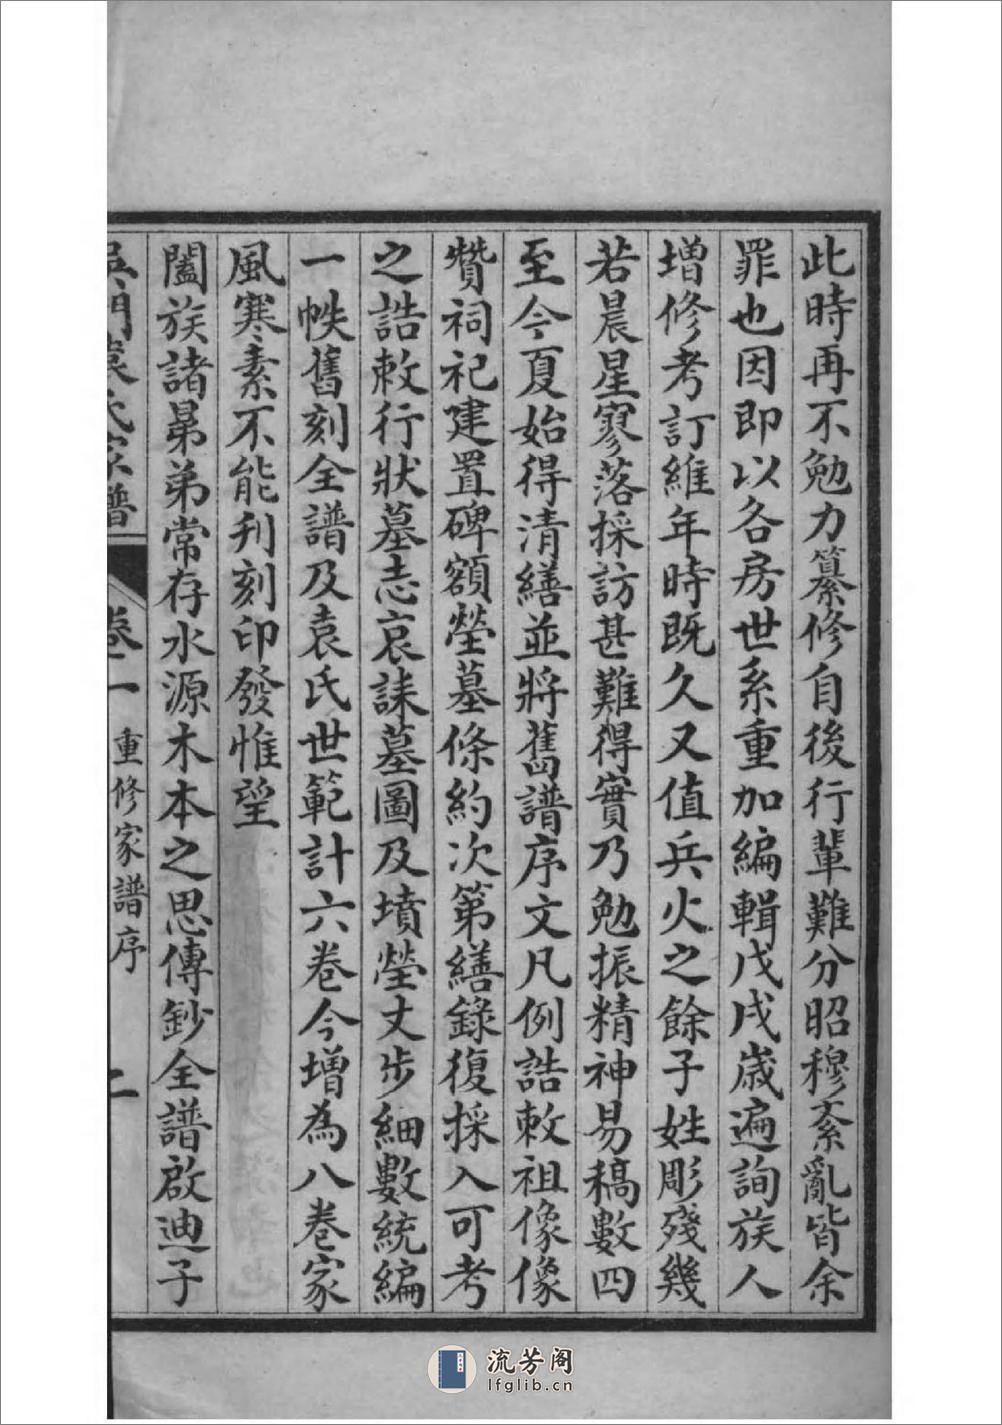 此時再不勉力纂修自後行輩難分昭穆紊亂皆余
罪也因即以各房世系重加編輯戊戌歲遍詢族人
增修考訂維年時既久又值兵火之餘子姓彫殘幾
若晨星寥落採訪甚難得實乃勉振精神易稿數四
至今夏始得清繕並將舊譜序文凡例誥敕祖像像
贊祠祀建置碑額塋墓條約次第繕錄復採入可考
之誥敕行狀墓志哀誄墓圖及墳塋丈步細數統編
一帙舊刻全譜及袁氏世範計六卷今增為八卷家
風寒素不能刋刻印發惟望
闔族諸晜弟常存水源木本之思傳鈔全譜啟迪子
吳門袁氏家譜 卷一 重修家譜序 二
流芳阁
lfglib.cn